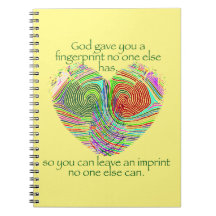 God gave you a
fingerprint no one else
has
so you can leave an imprint
no one else can.